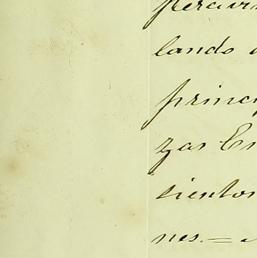 lando
princ
zas En
cientos
nes. =